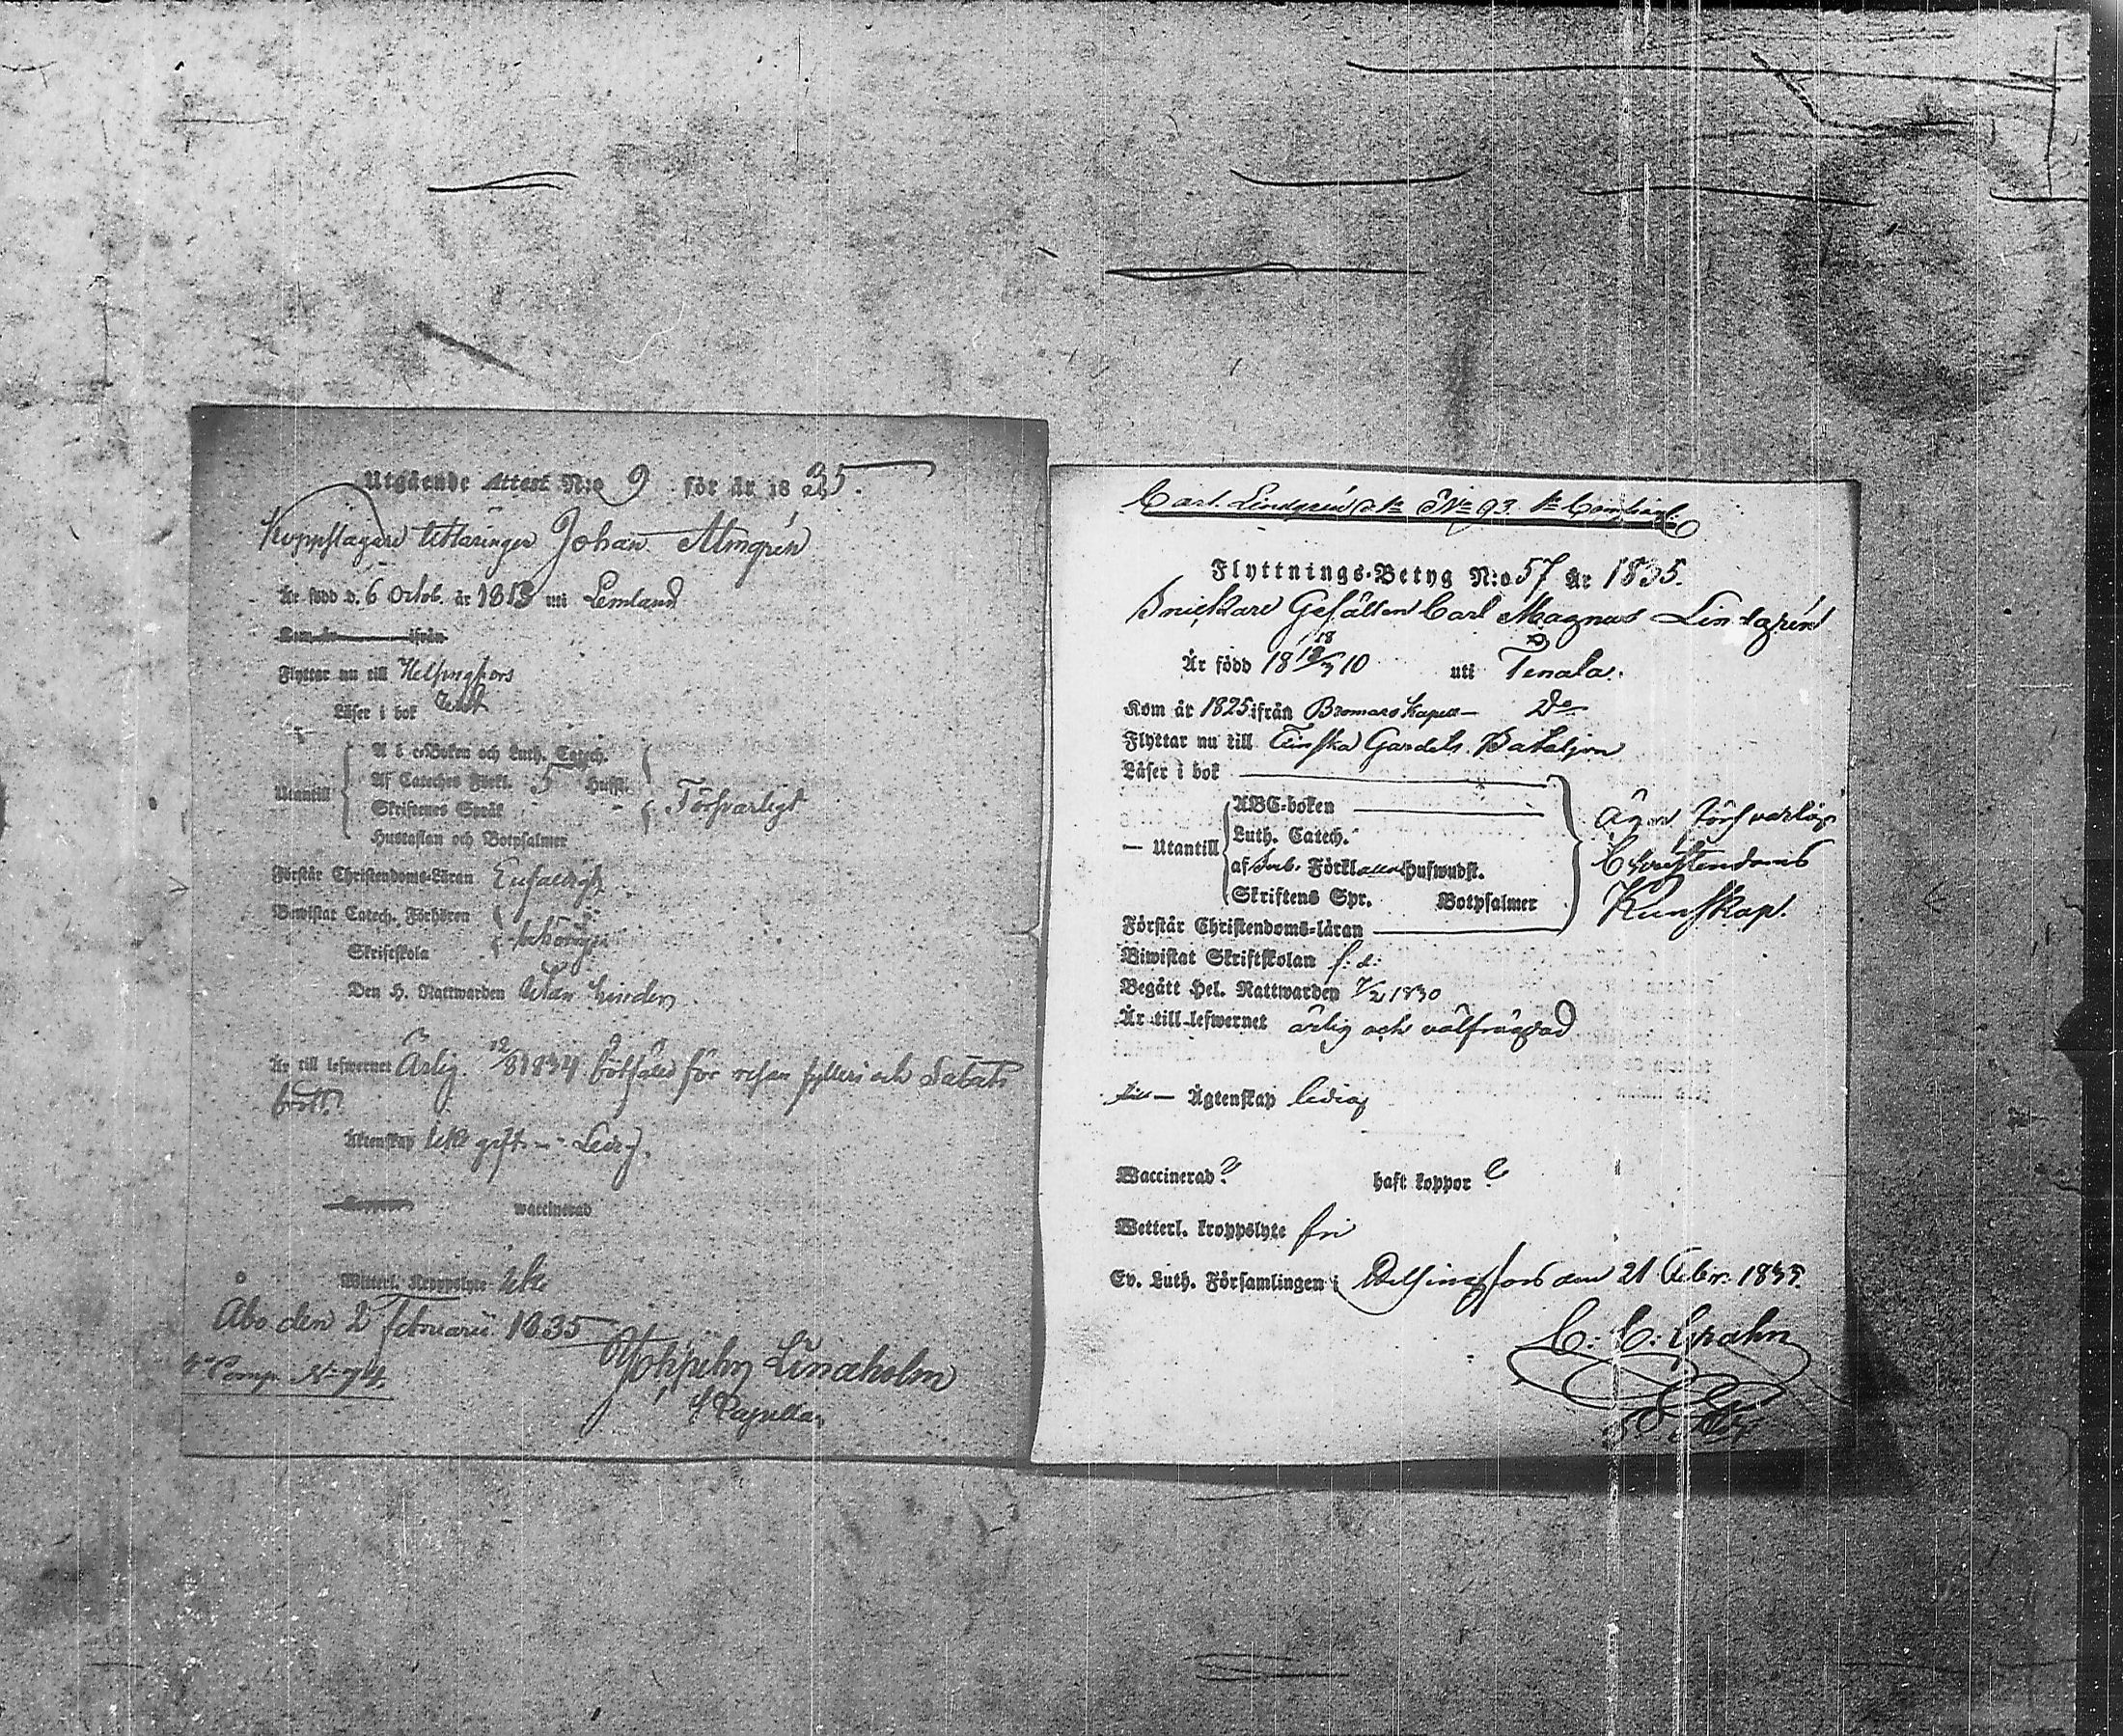 Utgående Attest N:o 9 för år 1835.
Kopparslagare Utläringen Johan Almgrén
Är född d. 6 Octob. år 1813 uti Lemland
Kom år ifrån
Flyttar nu till Helsingfors
Läser i bok
A b c-Boken och Luth. Catech.
Af Cateches Förkl. 5 Hufst.
Utantill
Skriftenes Språk
Försvarligt
Hustaflan och Botpsalmer
Förstår Christendoms-Läran Enfaldigt
Bewistat Catech. Förhören
Skriftskola
Den H. Nattwarden Utan hinder
Är till lefwernet Ärlig. 12/8 1834 bötfäld för resan fylleri och Sabats
brott.
Äktenskap icke gift – Ledig.
waccinerad
Witterl. Kroppslyte icke
Åbo den 2 Februarii 1835
Lindholm
4e Comp. No 74.
Carl Lindgrén No 93.
Flyttnings-Betyg N:o 57 År 1835.
Snickare Gesällen Carl Magnus Lindgrén
Är född 18 10 uti Tenala.
Kom år 1825 ifrån Bromarf Kapell – Do
Flyttar nu till Finska Gardets Bataljon
Läser i bok
ABC-boken
Luth. Catech.
– Utantill
af Sveb. Förkl allt Hufwudst.
Skriftens Spr. Botpsalmer
Äger försvarlig
Christendoms
Kunskap.
Förstår Christendoms-läran
Biwistat Skriftskolan f. d.
Begått Hel. Nattwarden 1830
Är till lefwernet ärlig och välfrägdad
till – Ägtenskap ledig
Waccinerad? haft koppor?
Wetterl. kroppslyte fri
Ev. Luth. Församlingen i Helsingfors den 21 Febr. 1835.
C: C: Grahn